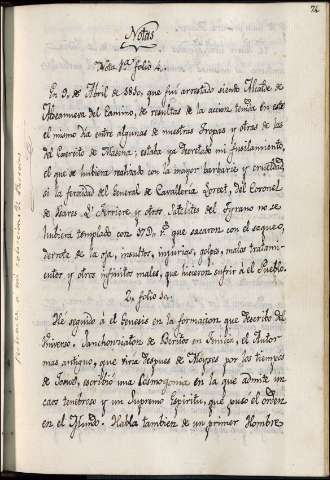 24
Notas
Nota 1ª folio 4.
En 9. de Abril de 1810, que fui arrestado siendo Alcalde de
del Camino, de resultas de la accion tenida en este
el mismo dia entre algunas de nuestras tropas y otras de las
del Exercito de Massena; estaba ya decretado mi fusilamiento,
el que se hubiera realizado con la mayor barbarie y crueldad,
si la ferocidad del General de Cavalleria Loreet, del Coronel
de L' Ferriere y otros Satelites del Tyrano no se
hubiera templado con que sacaron con el saqueo,
derrote de la insultos, injurias, golpes, malos tratami-
entos y otros infinitos males, que hicieron sufrir á el Pueblo.
2ª folio 30.
Hé seguido á el Genesis en la formacion que describo del
Universo. Sanchoniaton de Béritos en Fenicia, el Autor
mas antiguo, que vivia despues de Moyses por los tiempos
de Josue, escribió una Cosmogonia en la que admite un
caos tenebroso y un Supremo Espiritu, que puso el orden
en el Mundo. Habla tambien de un primer Hombre